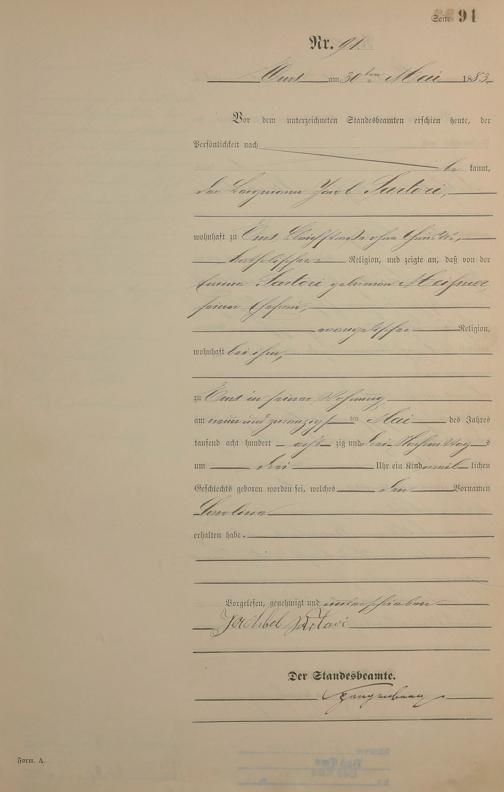 Seite 91
Nr. 91.
Ems am 30ten Mai 1883.
Vor dem unterzeichneten Standesbeamten erschien heute, der
Persönlichkeit nach
be kannt,
der Bergmann Jacob Sartori,
wohnhaft zu Ems
katholischer Religion, und zeigte an, daß von der
Sartori geborenen
seiner Ehefrau,
evangelischer Religion,
wohnhaft bei ihm,
zu Ems in seiner Wohnung
am neun und zwanzigsten Mai des Jahres
tausend acht hundert acht zig und drei
um drei Uhr ein Kind weib lichen
Geschlechts geboren worden sei, welches den Vornamen
erhalten habe.
Vorgelesen, genehmigt und unterschrieben
Sartori
Der Standesbeamte.
Form. A.